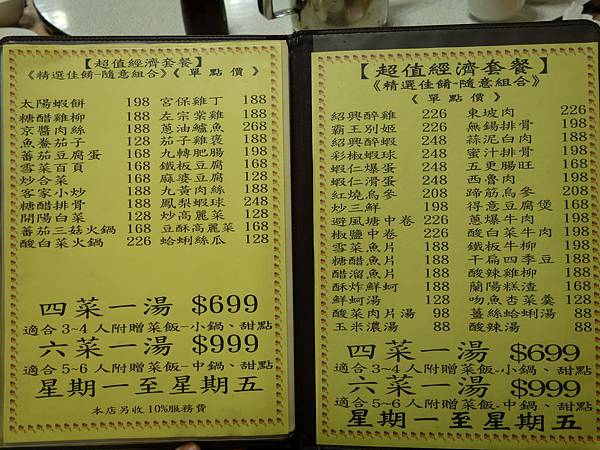 【超值經濟套餐】
《精選佳餚-隨意組合》《單點價》
太陽蝦餅 198 宮保雞丁 188
糖醋雞柳 188 左宗棠雞 188
京醬肉絲 188 蔥油鱸魚 268
魚羹茄子 128 茄子雞煲 188
蕃茄豆腐蛋 168 九轉肥腸 198
雪菜百頁 168 鐵板豆腐 168
炒合菜 168 麻婆豆腐 128
客家小炒 188 九黃肉絲 188
糖醋排骨 188 鳳梨蝦球 248
開陽白菜 128 炒高麗菜 128
蕃茄三菇火鍋 168 豆酥高麗菜 168
酸白菜火鍋 226 蛤蜊絲瓜 128
四菜一湯 $699
適合3~4人附贈菜飯-小鍋、甜點
六菜一湯 $999
適合5~6人附贈菜飯-中鍋、甜點
星期一至星期五
本店另收10%服務費
【超值經濟套餐】
《精選佳餚-隨意組合》
《單點價》
紹興醉雞 226 東坡肉 226
霸王別姬 226 無錫排骨 198
紹興醉蝦 248 蒜泥白肉 188
彩椒蝦球 248 蜜汁排骨 198
蝦仁爆蛋 248 五更腸旺 168
蝦仁滑蛋 248 西魯肉 198
紅燒烏參 208 蹄筋烏參 208
炒三鮮 198 得意豆腐煲 168
避風塘中卷 226 蔥爆牛肉 198
椒鹽中卷 226 酸白菜牛肉 198
雪菜魚片 188 鐵板牛柳 198
糖醋魚片 188 干扁四季豆 188
醋溜魚片 188 酸辣雞柳 188
酥炸鮮蚵 188 蘭陽糕渣 168
鮮蚵湯 128 吻魚杏菜羹 128
酸菜肉片湯 98 薑絲蛤蜊湯 88
玉米濃湯 88 酸辣湯 88
四菜一湯 $699
適合3~4人附贈菜飯-小鍋、甜點
六菜一湯 $999
適合5~6人附贈菜飯-中鍋、甜點
星期一至星期五